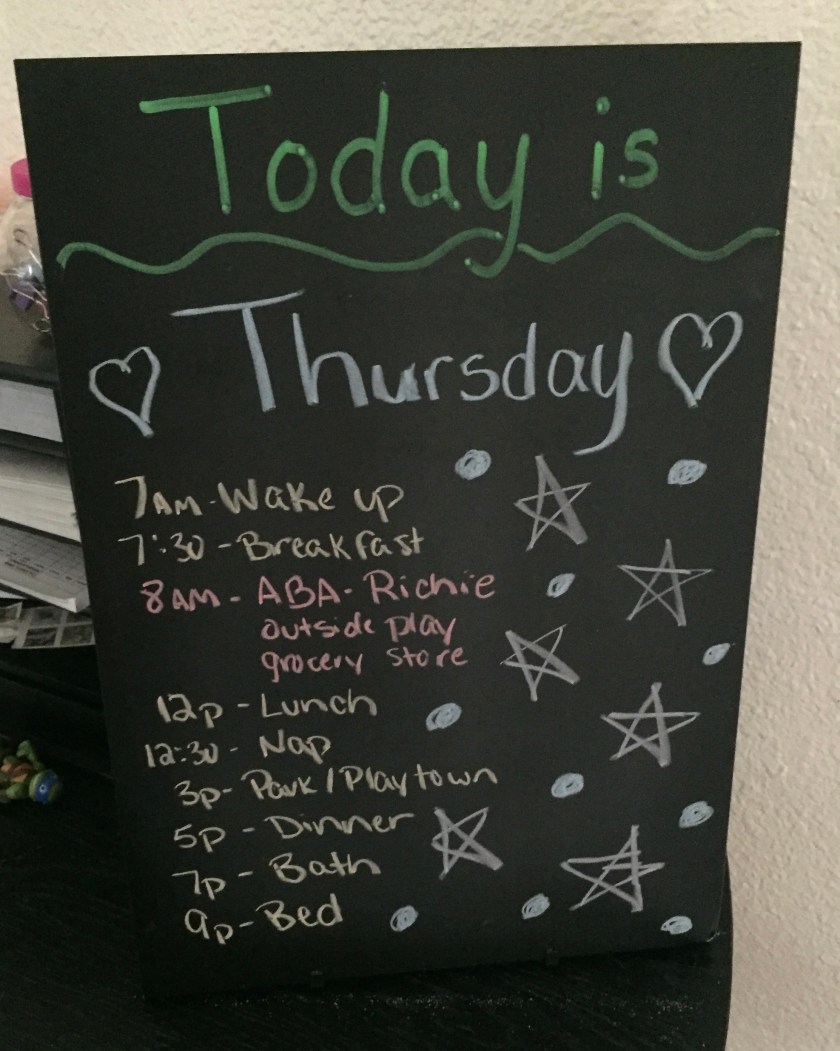 Today is
Thursday
7AM - Wake up
7:30 - Breakfast
8AM - ABA - Richie
outside play
grocery store
12p - Lunch
12:30 - Nap
3p - Park / Playtown
5p - Dinner
7p - Bath
9p - Bed